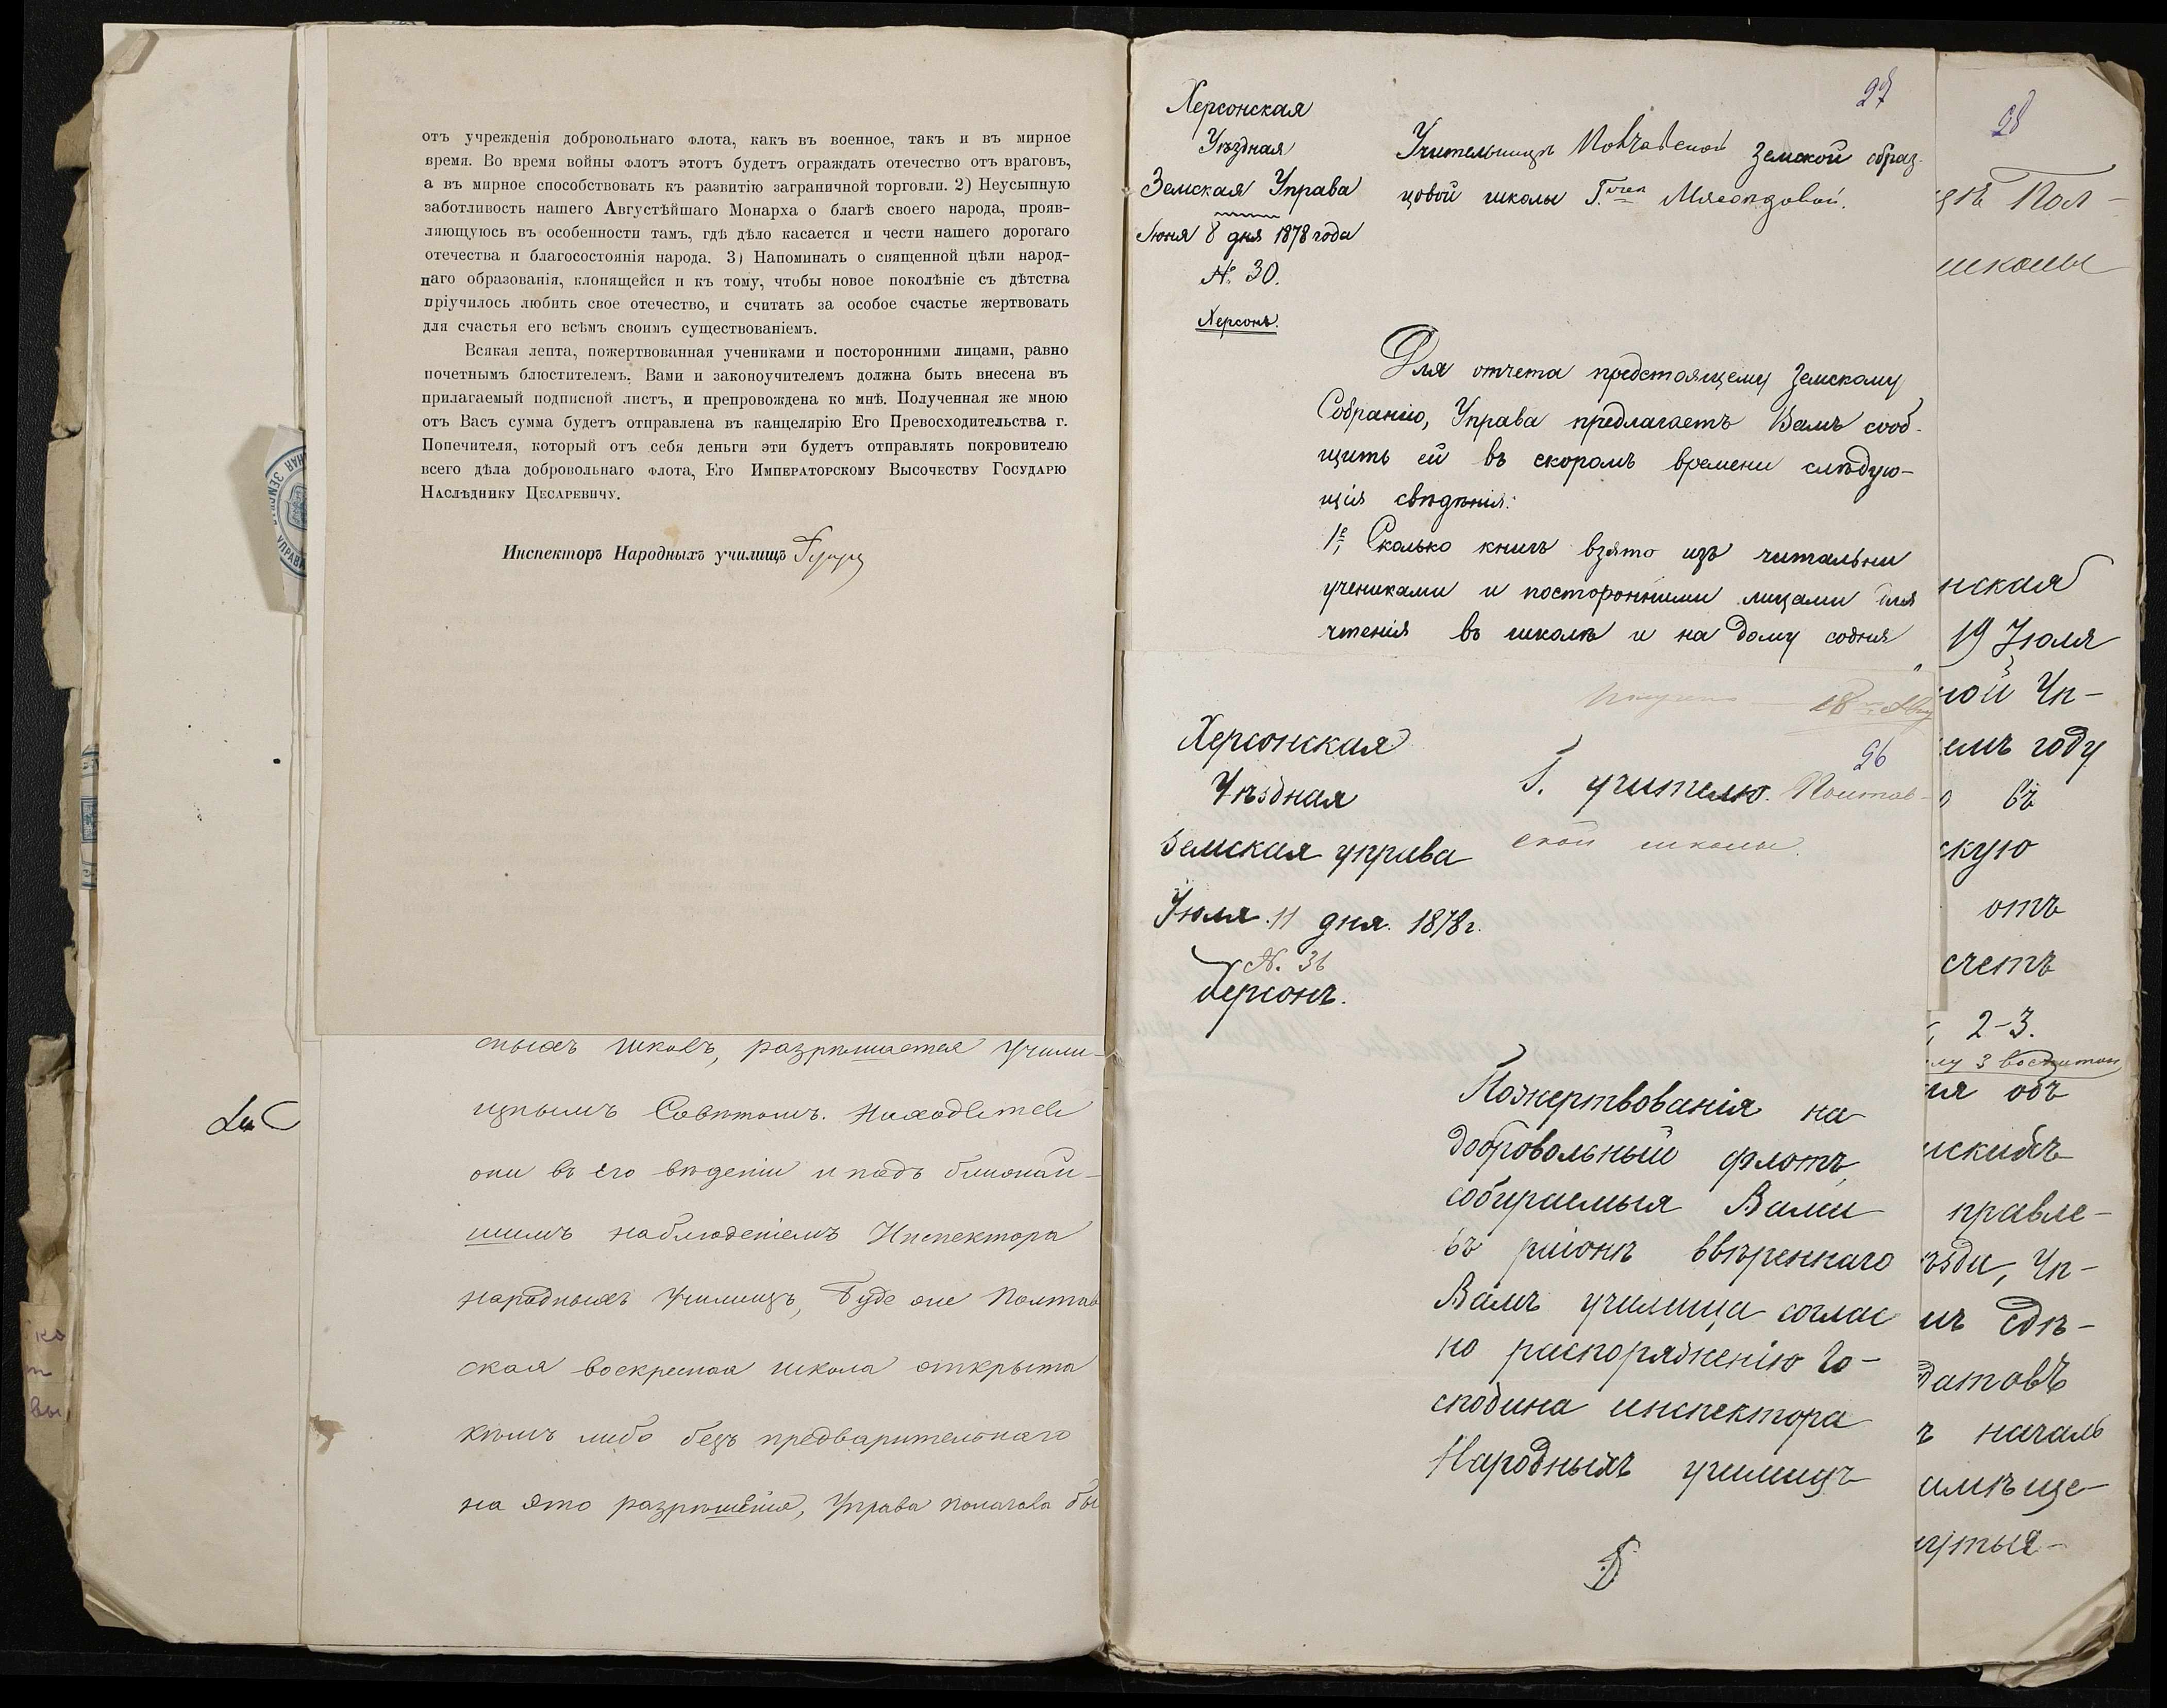 отъ учрежденія добровольнаго флота, какъ въ военное, такъ и въ мирное
время. Во время войны флотъ этотъ будетъ ограждать отечество отъ враговъ,
а въ мирное способствовать къ развитію заграничной торговли. 2) Неусыпную
заботливость нашего Августѣйшаго Монарха о благѣ своего народа, прояв-
ляющуюсь въ особенности тамъ, гдѣ дѣло касается и чести нашего дорогаго
отечества и благосостоянія народа. 3) Напоминать о священной цѣли народ-
наго образованія, клонящейся и къ тому, чтобы новое поколѣніе съ дѣтства
пріучилось любить свое отечество, и считать за особое счастье жертвовать
для счастья его всѣмъ своимъ существованіемъ.
Всякая лепта, пожертвованная учениками и посторонними лицами, равно
почетнымъ блюстителемъ, Вами и законоучителемъ должна быть внесена въ
прилагаемый подписной листъ, и препровождена ко мнѣ. Полученная же мною
отъ Васъ сумма будетъ отправлена въ канцелярію Его Превосходительства г.
Попечителя, который отъ себя деньги эти будетъ отправлять покровителю
всего дѣла добровольнаго флота, Его Императорскому Высочеству Государю
Наслѣднику Цесаревичу.
Инспекторъ Народныхъ училищъ
сныхъ школъ, разрѣшается Учили-
щнымъ Совѣтомъ. Находятся
они въ его вѣденіи и подъ ближай-
шимъ наблюденіемъ Инспектора
народныхъ Училищъ, Буде оне Полтав
ская воскресная школа открыта
кѣмъ либо безъ предварительнаго
на это разрѣшенія, Управа полагала бы
27
Херсонская
Уѣздная
Земская Управа
Іюня 8 дня 1878 года
№ 30.
Херсонъ.
Учительницѣ Земской образ-
цовой школы Г.
Для отчета предстоящему Земскому
Собранію, Управа предлагаетъ Вамъ сооб-
щить ей въ скоромъ времени слѣдую-
щія свѣдѣнія:
1е, Сколько книгъ взято изъ читальни
учениками и посторонними лицами для
чтенія въ школѣ и на дому со дня
18
26
Херсонская
Уѣздная
Земская управа
Іюля 11 дня. 1878 г.
№. 36
Херсонъ.
Г. учителю Полтав-
ской школы.
Пожертвованія на
добровольный флотъ,
собираемыя Вами
въ районѣ ввѣреннаго
Вамъ училища соглас
но распоряженію Го-
сподина инспектора
Народныхъ училищъ
28
цѣ Пол-
школы
нская
19 Іюля
ной Уп-
емъ году
въ
скую
отъ
счетъ
2-3.
ія объ
нскихъ
правле-
ѣзди, Уп-
мъ сдѣ-
датовъ
ъ началь
имѣще-
утыя-